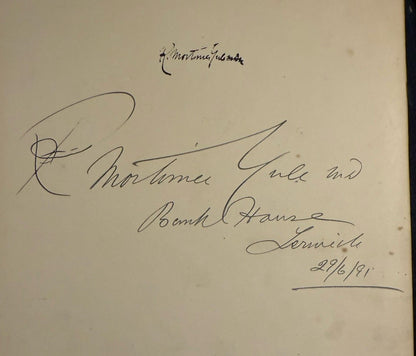 R Mortimer Yule MD
R Mortimer Yule MD
Bank House
Lerwick
29/6/91